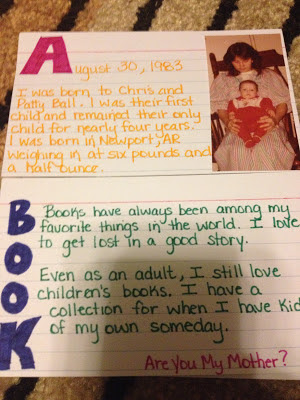 August 30, 1983
I was born to Chris and
Patty Ball. I was their first
child and remained their only
child for nearly four years.
I was born in Newport, AR
weighing in at six pounds and
a half ounce.
BOOK
Books have always been among my
favorite things in the world. I love
to get lost in a good story.
Even as an adult, I still love
children's books. I have a
collection for when I have kid
of my own someday.
Are You My Mother?